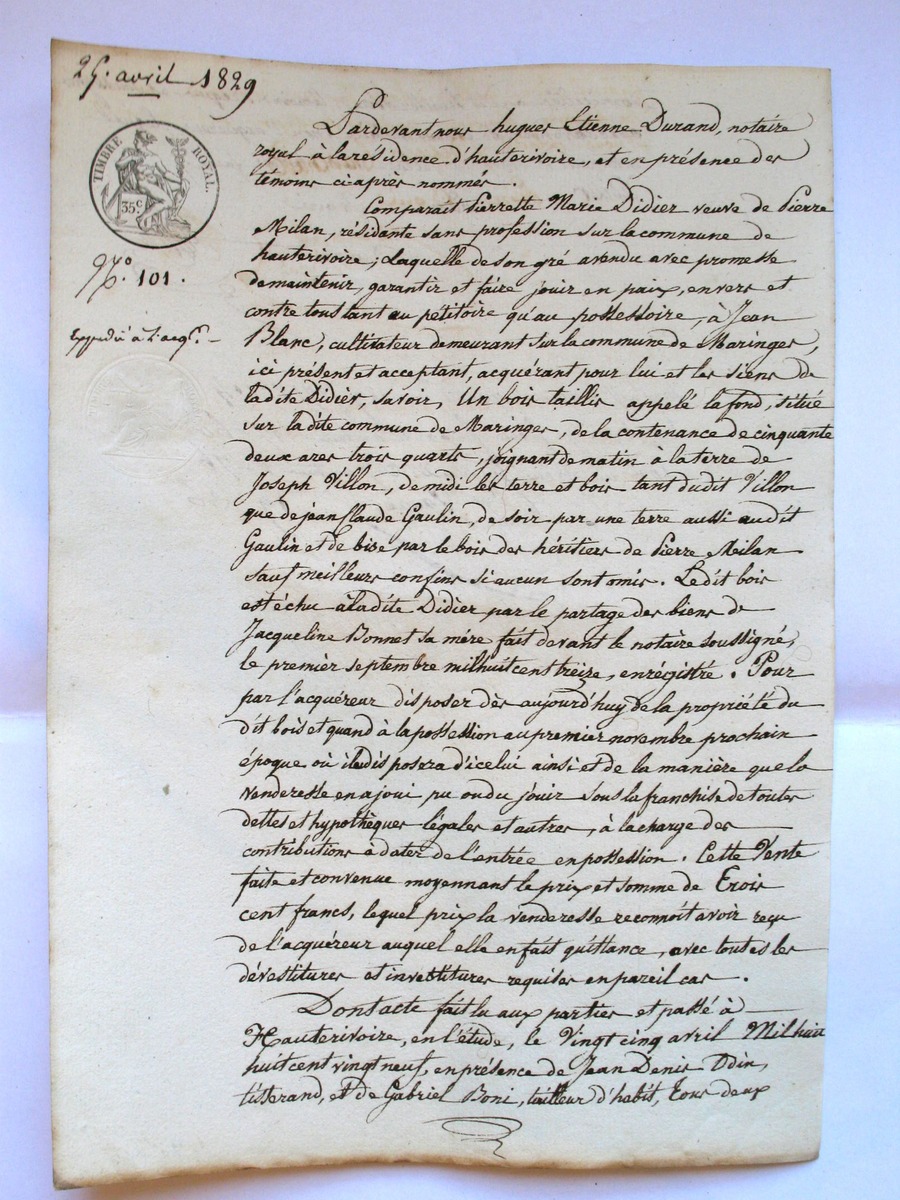 25. avril 1829
TIMBRE ROYAL.
35 c.
No. 101.
Expédié à l'acqr.
Pardevant nous hugues Etienne Durand, notaire
royal à la résidence d'hauterivoire, et en présence des
témoins ci après nommés.
Comparait Pierrette Marie Didier veuve de Pierre
Milan, résidante sans proféssion sur la commune de
hauterivoire; Laquelle de son gré a vendu avec promesse
de maintenir, garantir et faire jouir en paix, envers et
contre tous tant au pétitoire qu'au possessoire, à Jean
Blanc, cultivateur demeurant sur la commune de Maringes,
ici présent et acceptant, acquérant pour lui et les siens de
ladite Didier, savoir, Un bois taillis appelé la fond, situé
sur ladite commune de Maringes, de la contenance de cinquante
deux ares trois quarts, joignant de matin à la terre de
Joseph Villon, de midi les terre et bois tant dudit Villon
que de jean Claude Gaulin, de soir par une terre aussi audit
Gaulin et de bise par le bois des héritiers de Pierre Milan
sauf meilleurs confins si aucun sont omis. Ledit bois
est échu à ladite Didier par le partage des biens de
Jacqueline Bonnet sa mére fait devant le notaire soussigné,
le premier septembre mil huit cent treize, enrégistré. Pour
par l'acquéreur disposer dès aujourd'huy de la propriété du
dit bois et quand à la possession au premier novembre prochain
époque où il disposera d'icelui ainsi et de la manière que la
venderesse en a joui pu ou du jouir sous la franchise de toutes
dettes et hypothèques légales et autres, à la charge des
contributions à dater de l'entrée en possession. Cette Vente
faite et convenue moyennant le prix et somme de Trois
cent francs, lequel prix la venderesse reconnoit avoir reçu
de l'acquéreur auquel elle en fait quittance, avec toutes les
dévestitures et investitures requises en pareil cas.
Dont acte fait lu aux parties et passé à
Hauterivoire, en l'étude, le Vingt cinq avril Mil huit
huit cent vingt neuf, en présence de Jean Denis Odin,
tisserand, et de Gabriel Boni, tailleur d'habit, Tous deux